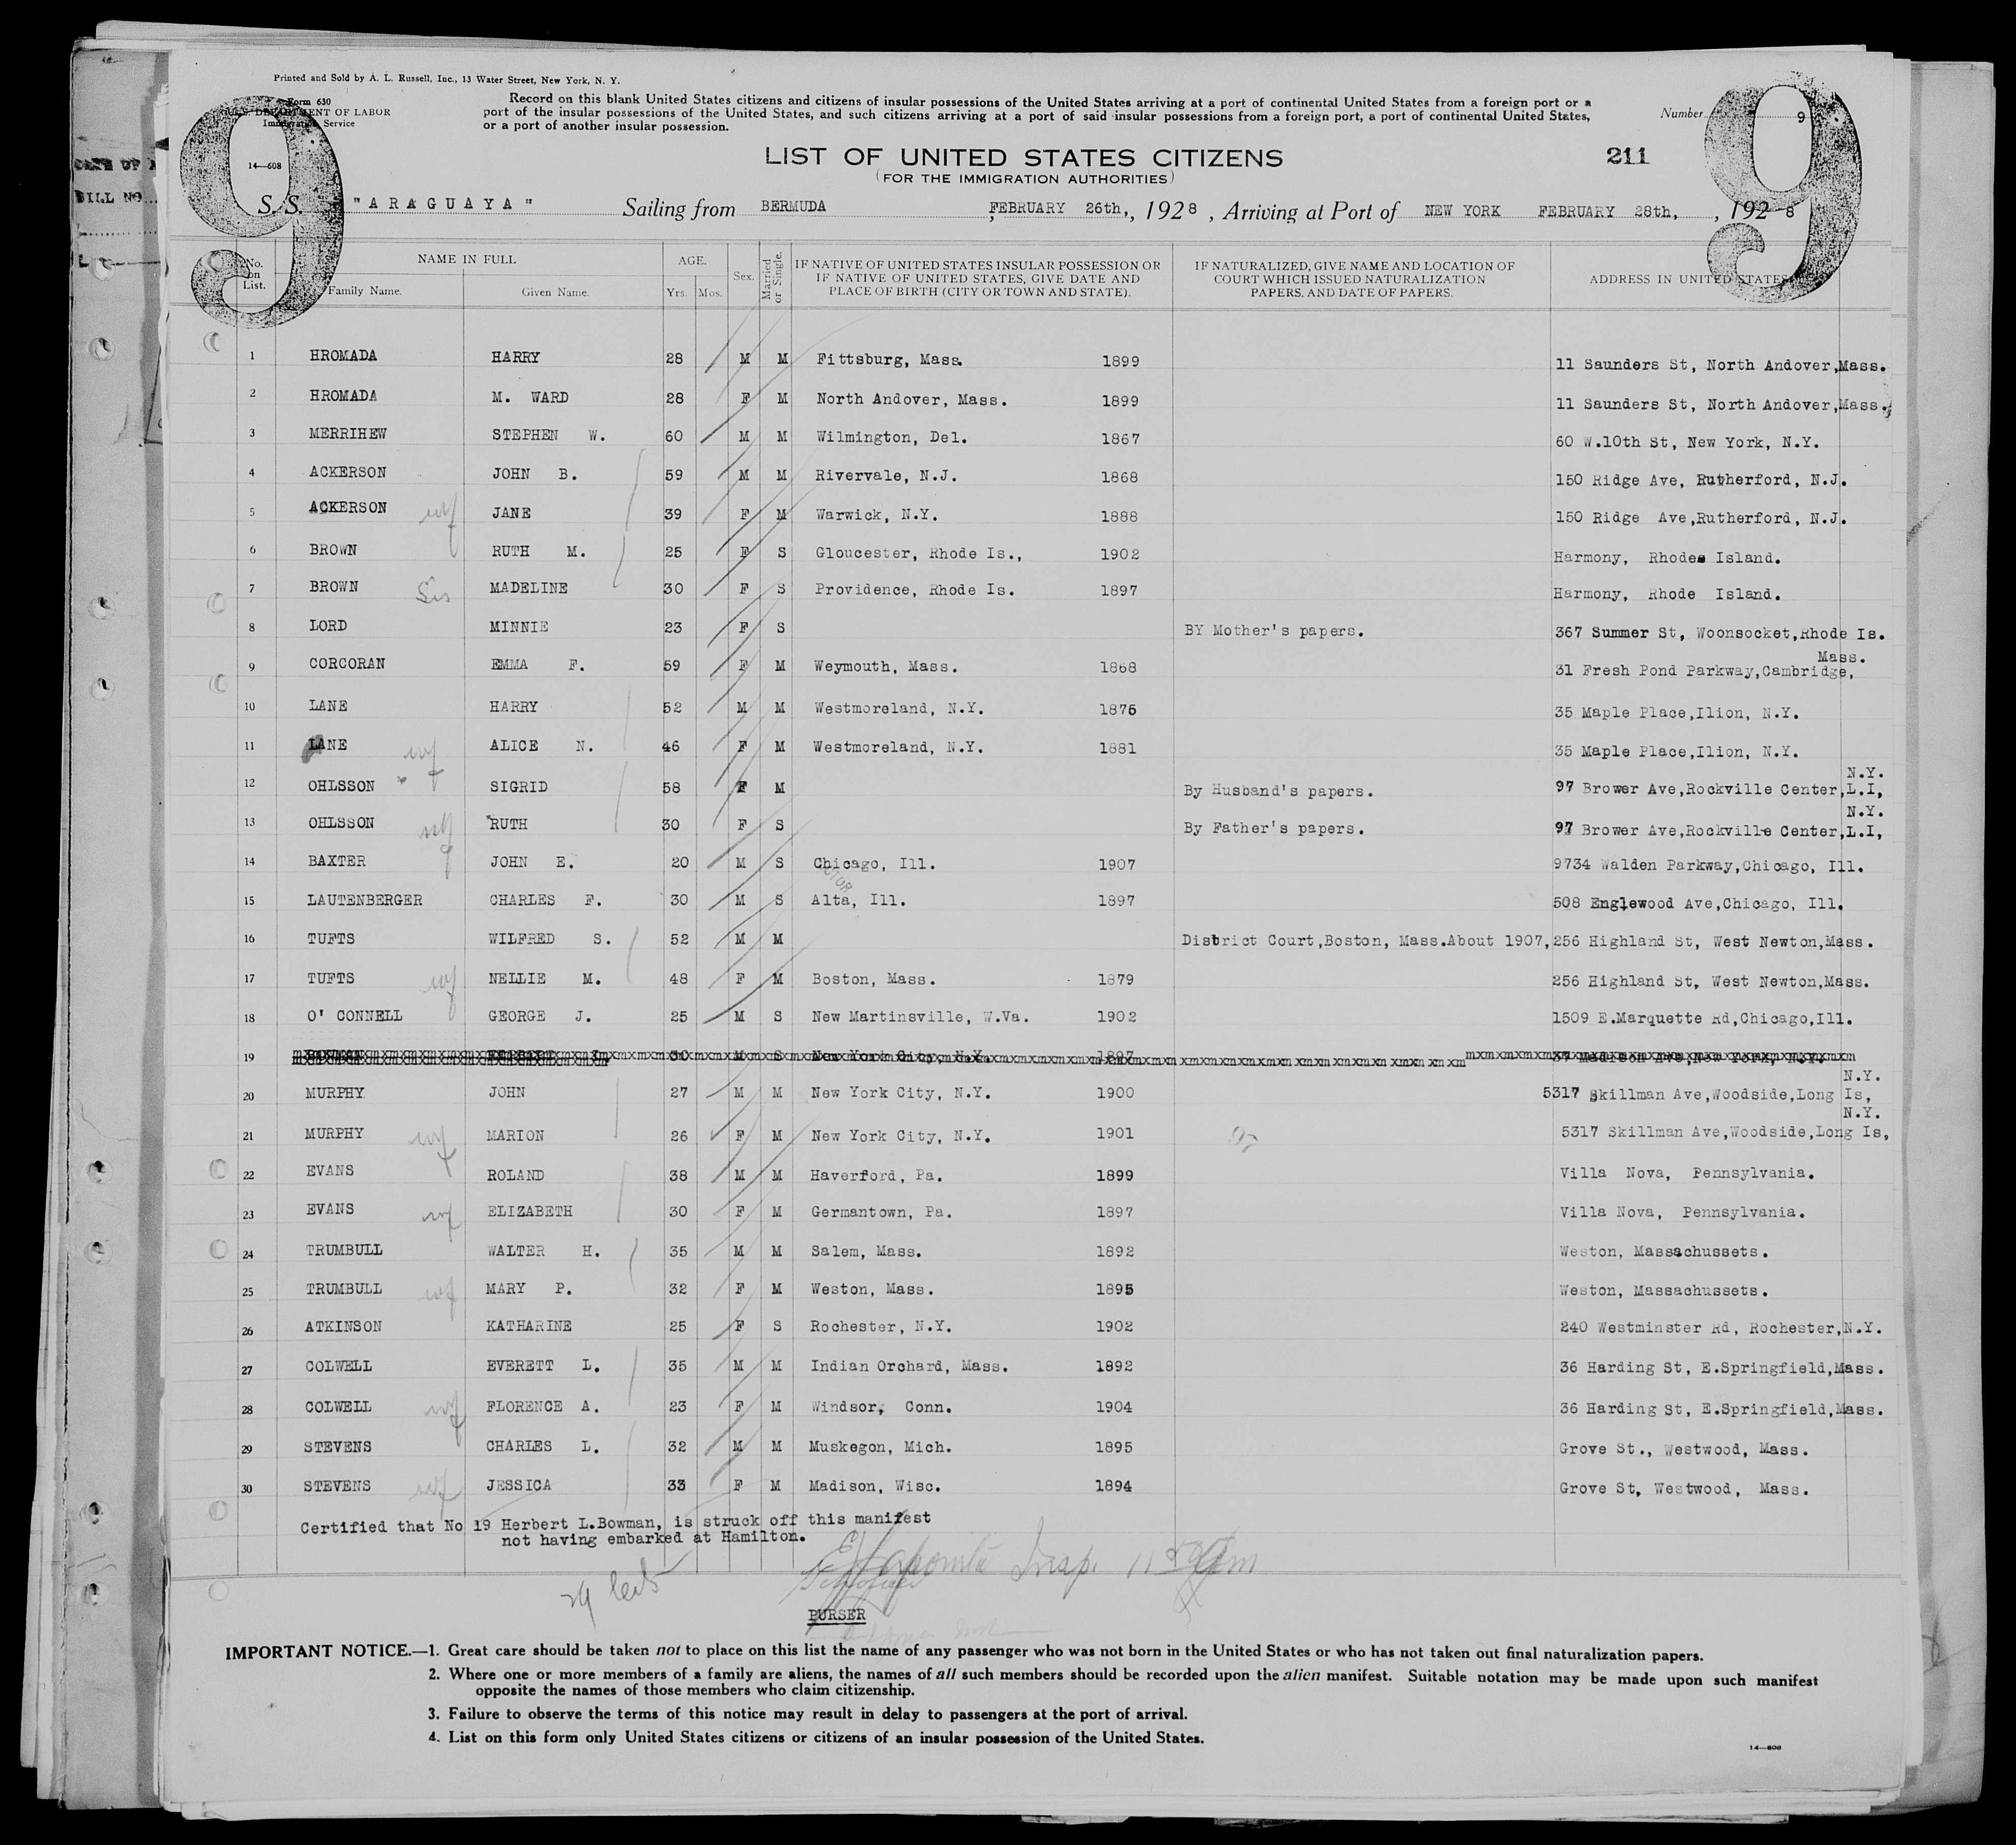 Printed and Sold by A. L. Russell, Inc., 13 Water Street, New York, N. Y.
Form 630
U. S. DEPARTMENT OF LABOR
Immigration Service
14—608
9
Record on this blank United States citizens and citizens of insular possessions of the United States arriving at a port of continental United States from a foreign port or a
port of the insular possessions of the United States, and such citizens arriving at a port of said insular possessions from a foreign port, a port of continental United States,
or a port of another insular possession.
Number 9
9
LIST OF UNITED STATES CITIZENS
(FOR THE IMMIGRATION AUTHORITIES)
211
DATE OF
BILL NO.
S. S. "ARAGUAYA" Sailing from BERMUDA FEBRUARY 26th, , 1928 , Arriving at Port of NEW YORK FEBRUARY 28th, , 192 8
No. on List. NAME IN FULL Family Name. Given Name. AGE. Yrs. Mos. Sex. Married or Single. IF NATIVE OF UNITED STATES INSULAR POSSESSION OR IF NATIVE OF UNITED STATES, GIVE DATE AND PLACE OF BIRTH (CITY OR TOWN AND STATE). IF NATURALIZED, GIVE NAME AND LOCATION OF COURT WHICH ISSUED NATURALIZATION PAPERS, AND DATE OF PAPERS. ADDRESS IN UNITED STATES
1 HROMADA HARRY 28 M M Fittsburg, Mass. 1899 11 Saunders St, North Andover,Mass.
2 HROMADA M. WARD 28 F M North Andover, Mass. 1899 11 Saunders St, North Andover,Mass.
3 MERRIHEW STEPHEN W. 60 M M Wilmington, Del. 1867 60 W.10th St, New York, N.Y.
4 ACKERSON JOHN B. 59 M M Rivervale, N.J. 1868 150 Ridge Ave, Rutherford, N.J.
5 ACKERSON wf JANE 39 F M Warwick, N.Y. 1888 150 Ridge Ave,Rutherford, N.J.
6 BROWN RUTH M. 25 F S Gloucester, Rhode Is., 1902 Harmony, Rhodes Island.
7 BROWN Sis MADELINE 30 F S Providence, Rhode Is. 1897 Harmony, Rhode Island.
8 LORD MINNIE 23 F S BY Mother's papers. 367 Summer St, Woonsocket,Rhode Is.
9 CORCORAN EMMA F. 59 F M Weymouth, Mass. 1868 31 Fresh Pond Parkway,Cambridge, Mass.
10 LANE HARRY 52 M M Westmoreland, N.Y. 1875 35 Maple Place,Ilion, N.Y.
11 LANE wf ALICE N. 46 F M Westmoreland, N.Y. 1881 35 Maple Place,Ilion, N.Y.
12 OHLSSON SIGRID 58 F M By Husband's papers. 97 Brower Ave,Rockville Center,L.I, N.Y.
13 OHLSSON RUTH 30 F S By Father's papers. 97 Brower Ave,Rockville Center,L.I, N.Y.
14 BAXTER JOHN E. 20 M S Chicago, Ill. 1907 9734 Walden Parkway,Chicago, Ill.
15 LAUTENBERGER CHARLES F. 30 M S Alta, Ill. 1897 508 Englewood Ave,Chicago, Ill.
16 TUFTS WILFRED S. 52 M M District Court,Boston, Mass.About 1907, 256 Highland St, West Newton,Mass.
17 TUFTS wf NELLIE M. 48 F M Boston, Mass. 1879 256 Highland St, West Newton,Mass.
18 O' CONNELL GEORGE J. 25 M S New Martinsville, W.Va. 1902 1509 E.Marquette Rd,Chicago,Ill.
19 BOWMAN HERBERT L. 30 M S New York City, N.Y. 1897 37 Madison Ave,New York, N.Y.
20 MURPHY JOHN 27 M M New York City, N.Y. 1900 5317 Skillman Ave,Woodside,Long Is, N.Y.
21 MURPHY wf MARION 26 F M New York City, N.Y. 1901 5317 Skillman Ave,Woodside,Long Is, N.Y.
22 EVANS ROLAND 38 M M Haverford, Pa. 1899 Villa Nova, Pennsylvania.
23 EVANS wf ELIZABETH 30 F M Germantown, Pa. 1897 Villa Nova, Pennsylvania.
24 TRUMBULL WALTER H. 35 M M Salem, Mass. 1892 Weston, Massachussets.
25 TRUMBULL wf MARY P. 32 F M Weston, Mass. 1895 Weston, Massachussets.
26 ATKINSON KATHARINE 25 F S Rochester, N.Y. 1902 240 Westminster Rd, Rochester,N.Y.
27 COLWELL EVERETT L. 35 M M Indian Orchard, Mass. 1892 36 Harding St, E.Springfield,Mass.
28 COLWELL wf FLORENCE A. 23 F M Windsor, Conn. 1904 36 Harding St, E.Springfield,Mass.
29 STEVENS CHARLES L. 32 M M Muskegon, Mich. 1895 Grove St., Westwood, Mass.
30 STEVENS wf JESSICA 33 F M Madison, Wisc. 1894 Grove St, Westwood, Mass.
Certified that No 19 Herbert L.Bowman, is struck off this manifest
not having embarked at Hamilton.
Insp.
PURSER
IMPORTANT NOTICE.—1. Great care should be taken not to place on this list the name of any passenger who was not born in the United States or who has not taken out final naturalization papers.
2. Where one or more members of a family are aliens, the names of all such members should be recorded upon the alien manifest. Suitable notation may be made upon such manifest
opposite the names of those members who claim citizenship.
3. Failure to observe the terms of this notice may result in delay to passengers at the port of arrival.
4. List on this form only United States citizens or citizens of an insular possession of the United States.
14—608